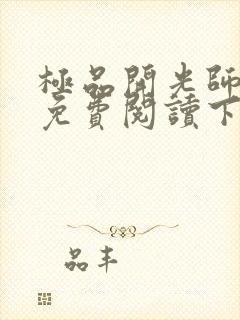 極品開光師
免費閱讀下
品丰